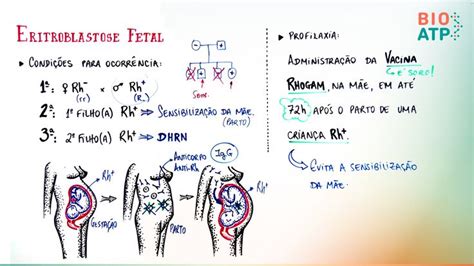 BIO
ATP
ERITROBLASTOSE FETAL
► CONDIÇÕES PARA OCORRÊNCIA:
1ª: ♀ Rh⁻ × ♂ Rh⁺
(rr) (R_)
2ª: 1º FILHO(A) Rh⁺ → SENSIBILIZAÇÃO DA MÃE.
(PARTO)
3ª: 2º FILHO(A) Rh⁺ → DHRN
Sens.
Rh⁺
GESTAÇÃO
ANTICORPO
ANTI-Rh
IgG
PARTO
Rh⁺
► PROFILAXIA:
ADMINISTRAÇÃO DA VACINA
↳ É SORO!
RHOGAM, NA MÃE, EM ATÉ
72h APÓS O PARTO DE UMA
CRIANÇA Rh⁺.
↳ EVITA A SENSIBILIZAÇÃO
DA MÃE.